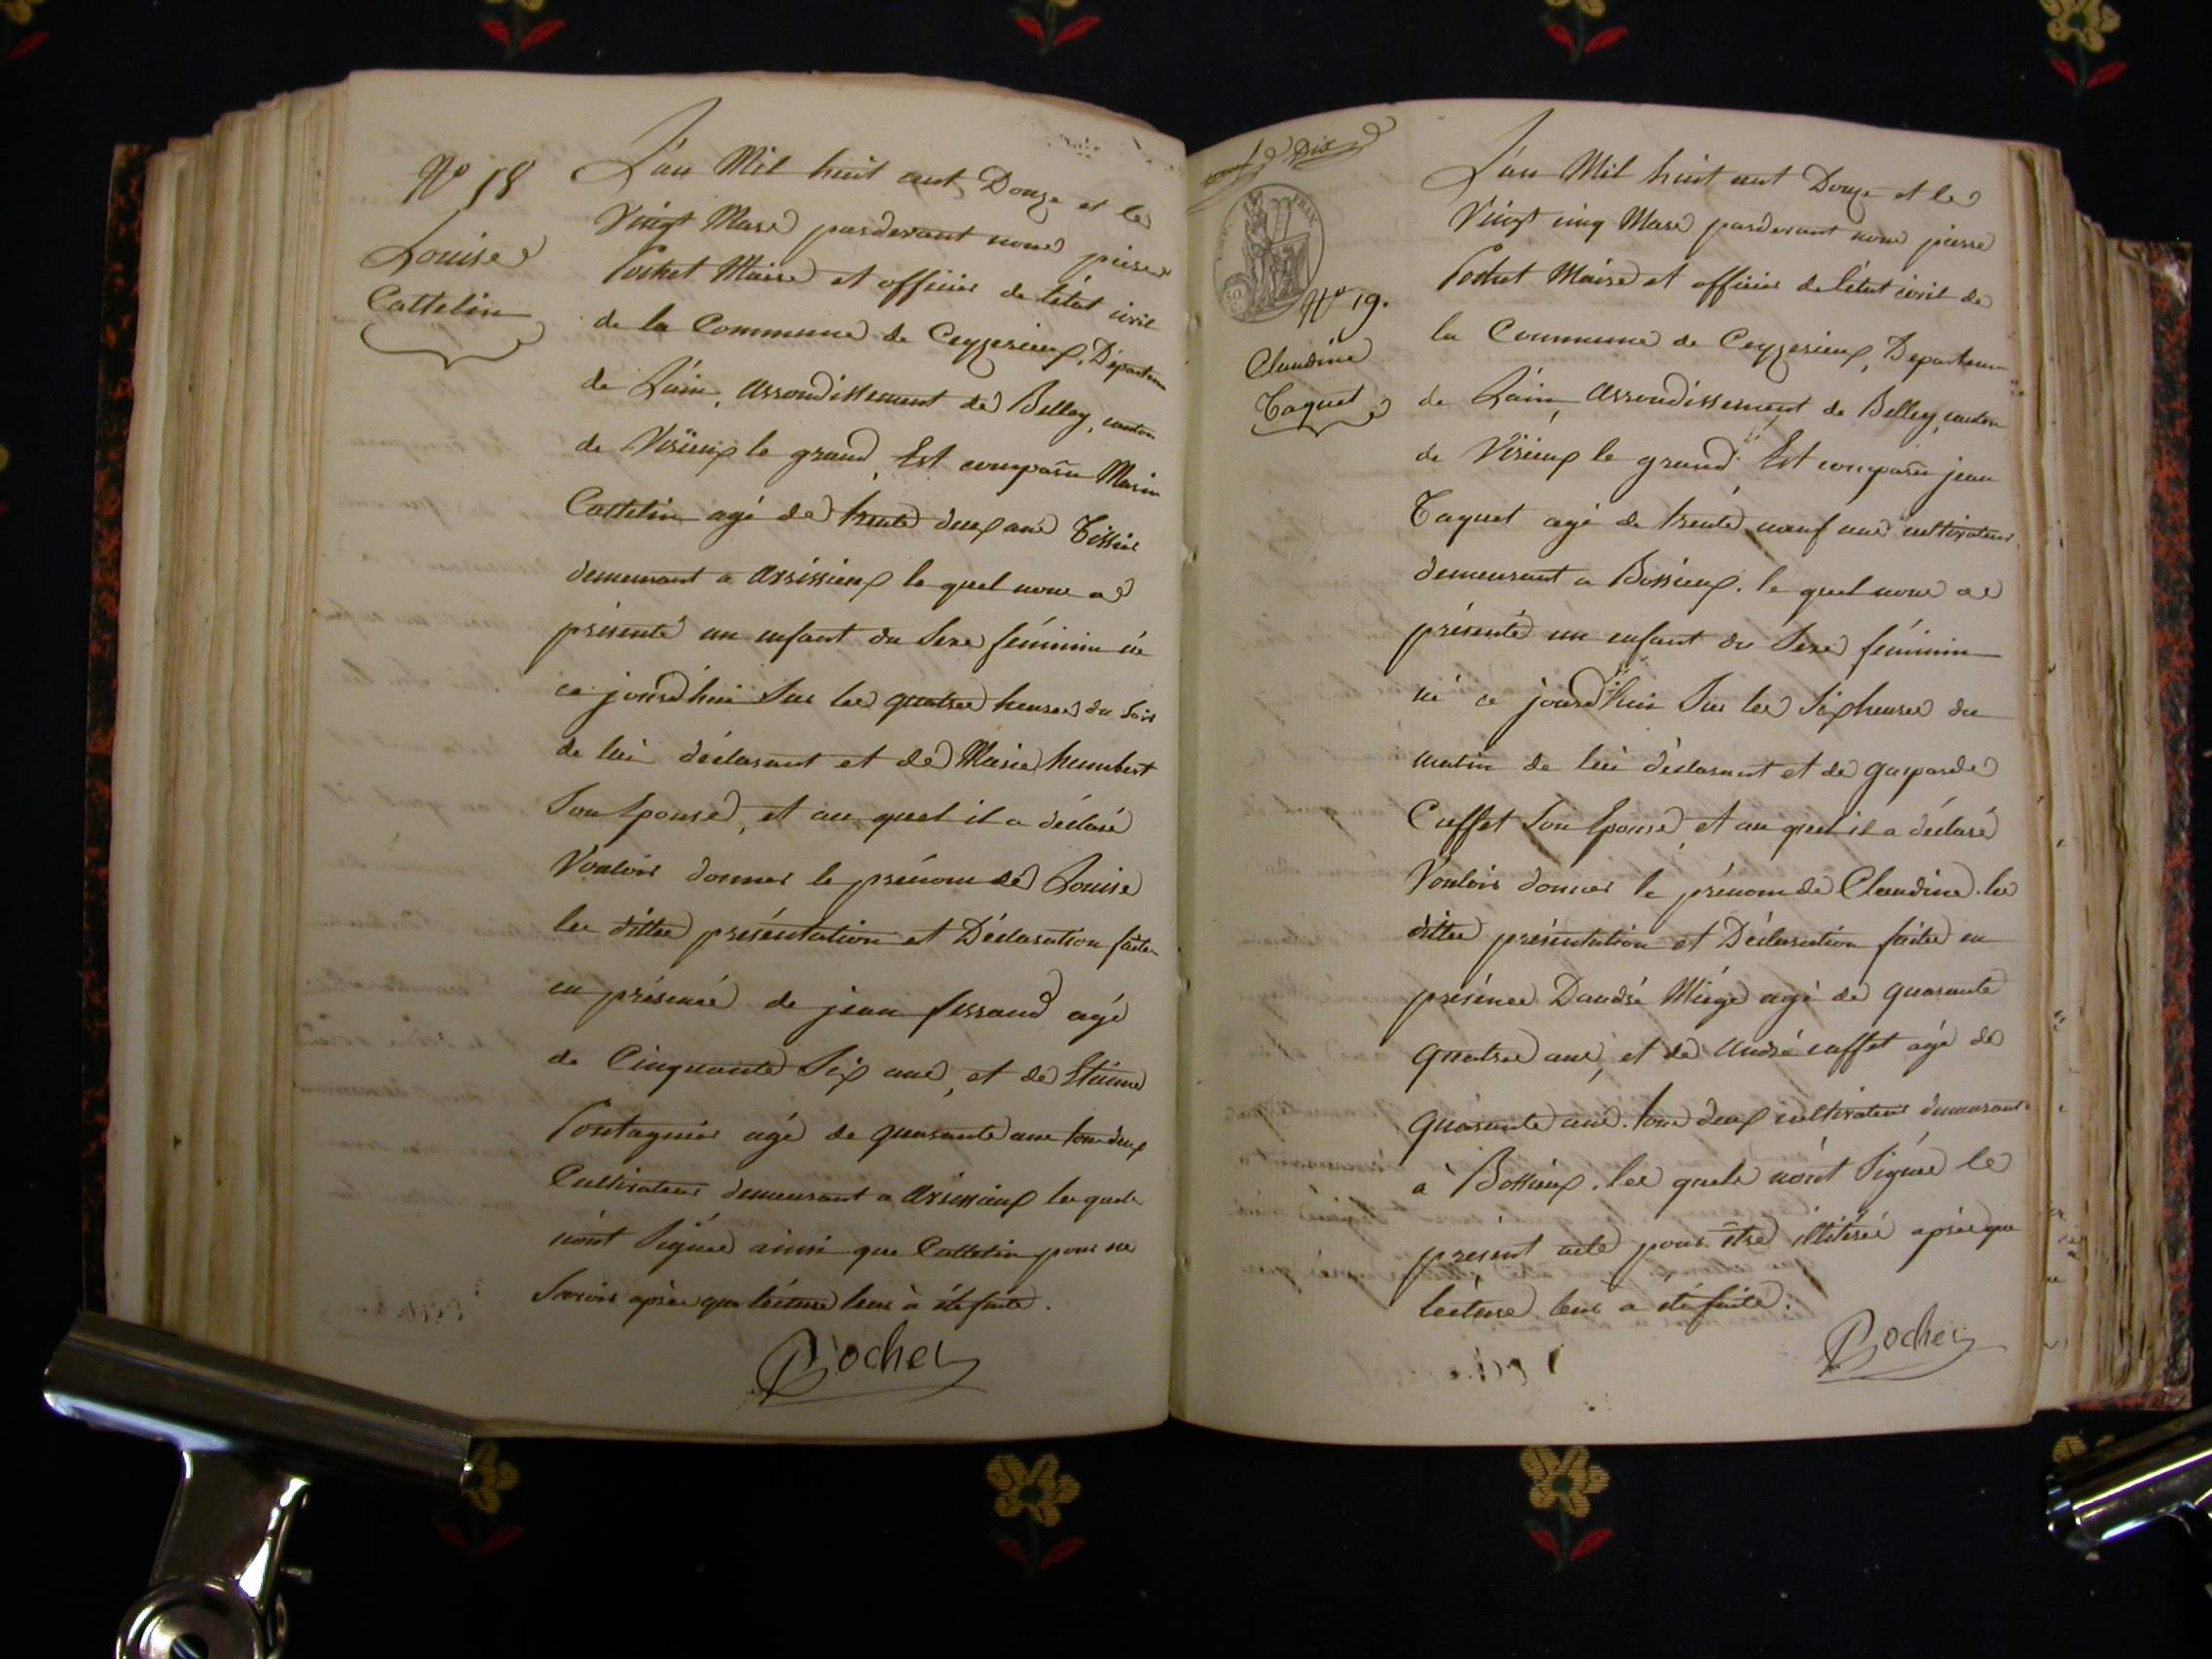 No 18
Louise
Cattelin
L'an Mil huit cent Douze et le
Vingt Mars pardevant nous pierre
Pochet Maire et officier de l'état civil
de la Commune de Ceyzerieux, Départem
de L'ain, arrondissement de Belley, canton
de Virieux le grand, Est comparu Marin
Cattelin agé de trente deux ans Tissier
demeurant a arsissieux le quel nous a
présenté un enfant du Sexe féminin né
ce jourd'hui Sur les quatre heures du Soir
de lui déclarant et de Marie humbert
Son Epouse, et au quel il a déclaré
Vouloir donner le prénom de Louise
les dittes présentation et Déclaration faites
en présence de jean ferrand agé
de Cinquante Six ans, et de Etienne
Pontagnier agé de quarante ans tous deux
Cultivateurs demeurant a arsissieux les quels
n'ont Signés ainsi que Cattelin pour ne
Savoir après que lécture leur à été faite.
Pochet
Dix
50
No 19.
Claudine
Taquet
L'an Mil huit cent Douze et le
Vingt cinq Mars pardevant nous pierre
Pochet Maire et officier de l'état civil de
la Commune de Ceyzerieux, Departem
de L'ain, arrondissement de Belley, canton
de Virieux le grand Est comparu jean
Taquet agé de trente neuf ans cultivateur
demeurant a Bossieux. le quel nous a
présenté un enfant du Sexe féminin
né ce jourd'hui Sur les Six heures du
matin de lui déclarant et de gasparde
Cuffet Son Epouse, et au quel il a déclaré
Vouloir donner le prénom de Claudine. les
dittes présentation et Déclaration faites en
présence Dandré Miége agé de quarante
quatre ans, et de André cuffet agé de
quarante ans. tous deux cultivateurs demeurant
à Bossieux. les quels n'ont Signés le
present acte pour être illitérés après que
lecture leur a été faite.
Pochet